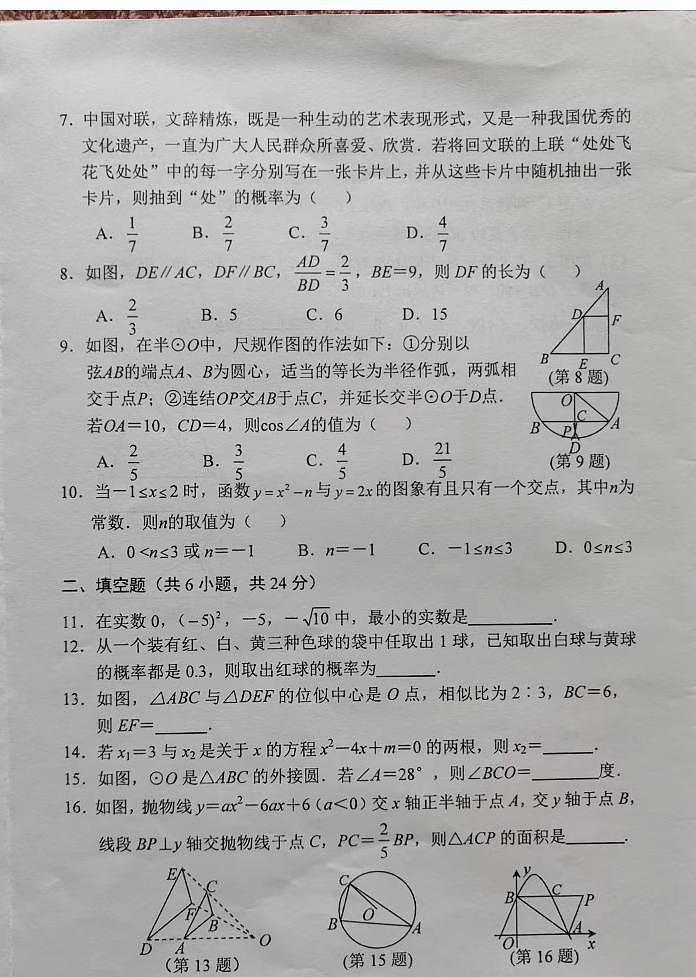 7. 中国对联，文辞精炼，既是一种生动的艺术表现形式，又是一种我国优秀的
文化遗产，一直为广大人民群众所喜爱、欣赏．若将回文联的上联“处处飞
花飞处处”中的每一字分别写在一张卡片上，并从这些卡片中随机抽出一张
卡片，则抽到“处”的概率为（　　）
A. 1/7　B. 2/7　C. 3/7　D. 4/7
8. 如图，DE∥AC，DF∥BC，AD/BD=2/3，BE=9，则 DF 的长为（　　）
A. 2/3　B. 5　C. 6　D. 15
A
D
F
B
E
C
(第 8 题)
9. 如图，在半⊙O中，尺规作图的作法如下：①分别以
弦AB的端点A、B为圆心，适当的等长为半径作弧，两弧相
交于点P；②连结OP交AB于点C，并延长交半⊙O于D点．
若OA=10，CD=4，则cos∠A的值为（　　）
A. 2/5　B. 3/5　C. 4/5　D. 21/5
O
C
B
P
A
D
(第 9 题)
10. 当－1≤x≤2 时，函数 y=x²－n 与 y=2x 的图象有且只有一个交点，其中n为
常数．则n的取值为（　　）
A. 0<n≤3 或 n=－1　B. n=－1　C. －1≤n≤3　D. 0≤n≤3
二、填空题（共 6 小题，共 24 分）
11. 在实数 0，(－5)²，－5，－√10 中，最小的实数是______．
12. 从一个装有红、白、黄三种色球的袋中任取出 1 球，已知取出白球与黄球
的概率都是 0.3，则取出红球的概率为______．
13. 如图，△ABC 与△DEF 的位似中心是 O 点，相似比为 2∶3，BC=6，
则 EF=______．
14. 若 x₁=3 与 x₂ 是关于 x 的方程 x²－4x+m=0 的两根，则 x₂=______．
15. 如图，⊙O 是△ABC 的外接圆．若∠A=28°，则∠BCO=______度．
16. 如图，抛物线 y=ax²－6ax+6（a<0）交 x 轴正半轴于点 A，交 y 轴于点 B，
线段 BP⊥y 轴交抛物线于点 C，PC=2/5 BP，则△ACP 的面积是______．
E
C
F
B
D
A
O
(第 13 题)
C
O
B
A
(第 15 题)
y
B
C
P
O
A
x
(第 16 题)